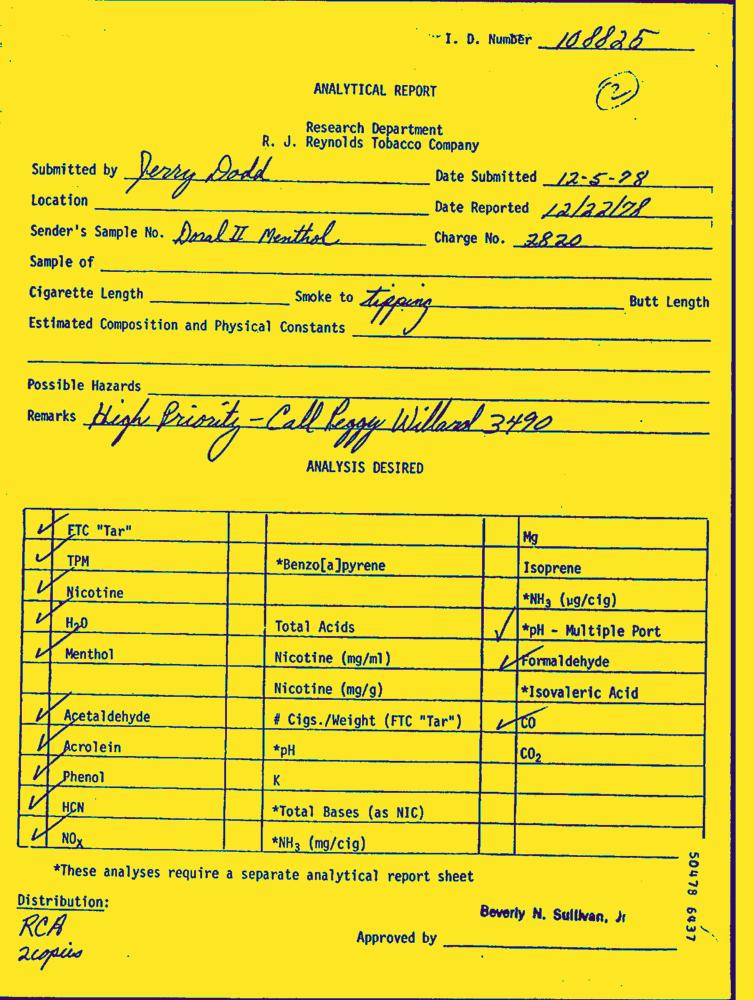 I. D. Number 108825
ANALYTICAL REPORT
2
Research Department
R. J. Reynolds Tobacco Company
Submitted by Jerry Dodd Date Submitted 12-5-78
Location Date Reported 12/22/78
Sender's Sample No. Doral II Menthol Charge No. 2820
Sample of
Cigarette Length Smoke to tipping Butt Length
Estimated Composition and Physical Constants
Possible Hazards
Remarks High Priority - Call Peggy Willard 3490
ANALYSIS DESIRED
✓ FTC "Tar" Mg
✓ TPM *Benzo[a]pyrene Isoprene
✓ Nicotine *NH₃ (µg/cig)
✓ H₂O Total Acids ✓ *pH - Multiple Port
✓ Menthol Nicotine (mg/ml) ✓ Formaldehyde
Nicotine (mg/g) *Isovaleric Acid
✓ Acetaldehyde # Cigs./Weight (FTC "Tar") ✓ CO
✓ Acrolein *pH CO₂
✓ Phenol K
✓ HCN *Total Bases (as NIC)
✓ NOx *NH₃ (mg/cig)
*These analyses require a separate analytical report sheet
Distribution:
RCA
2copies
Beverly N. Sullivan, Jr
Approved by
50478 6437